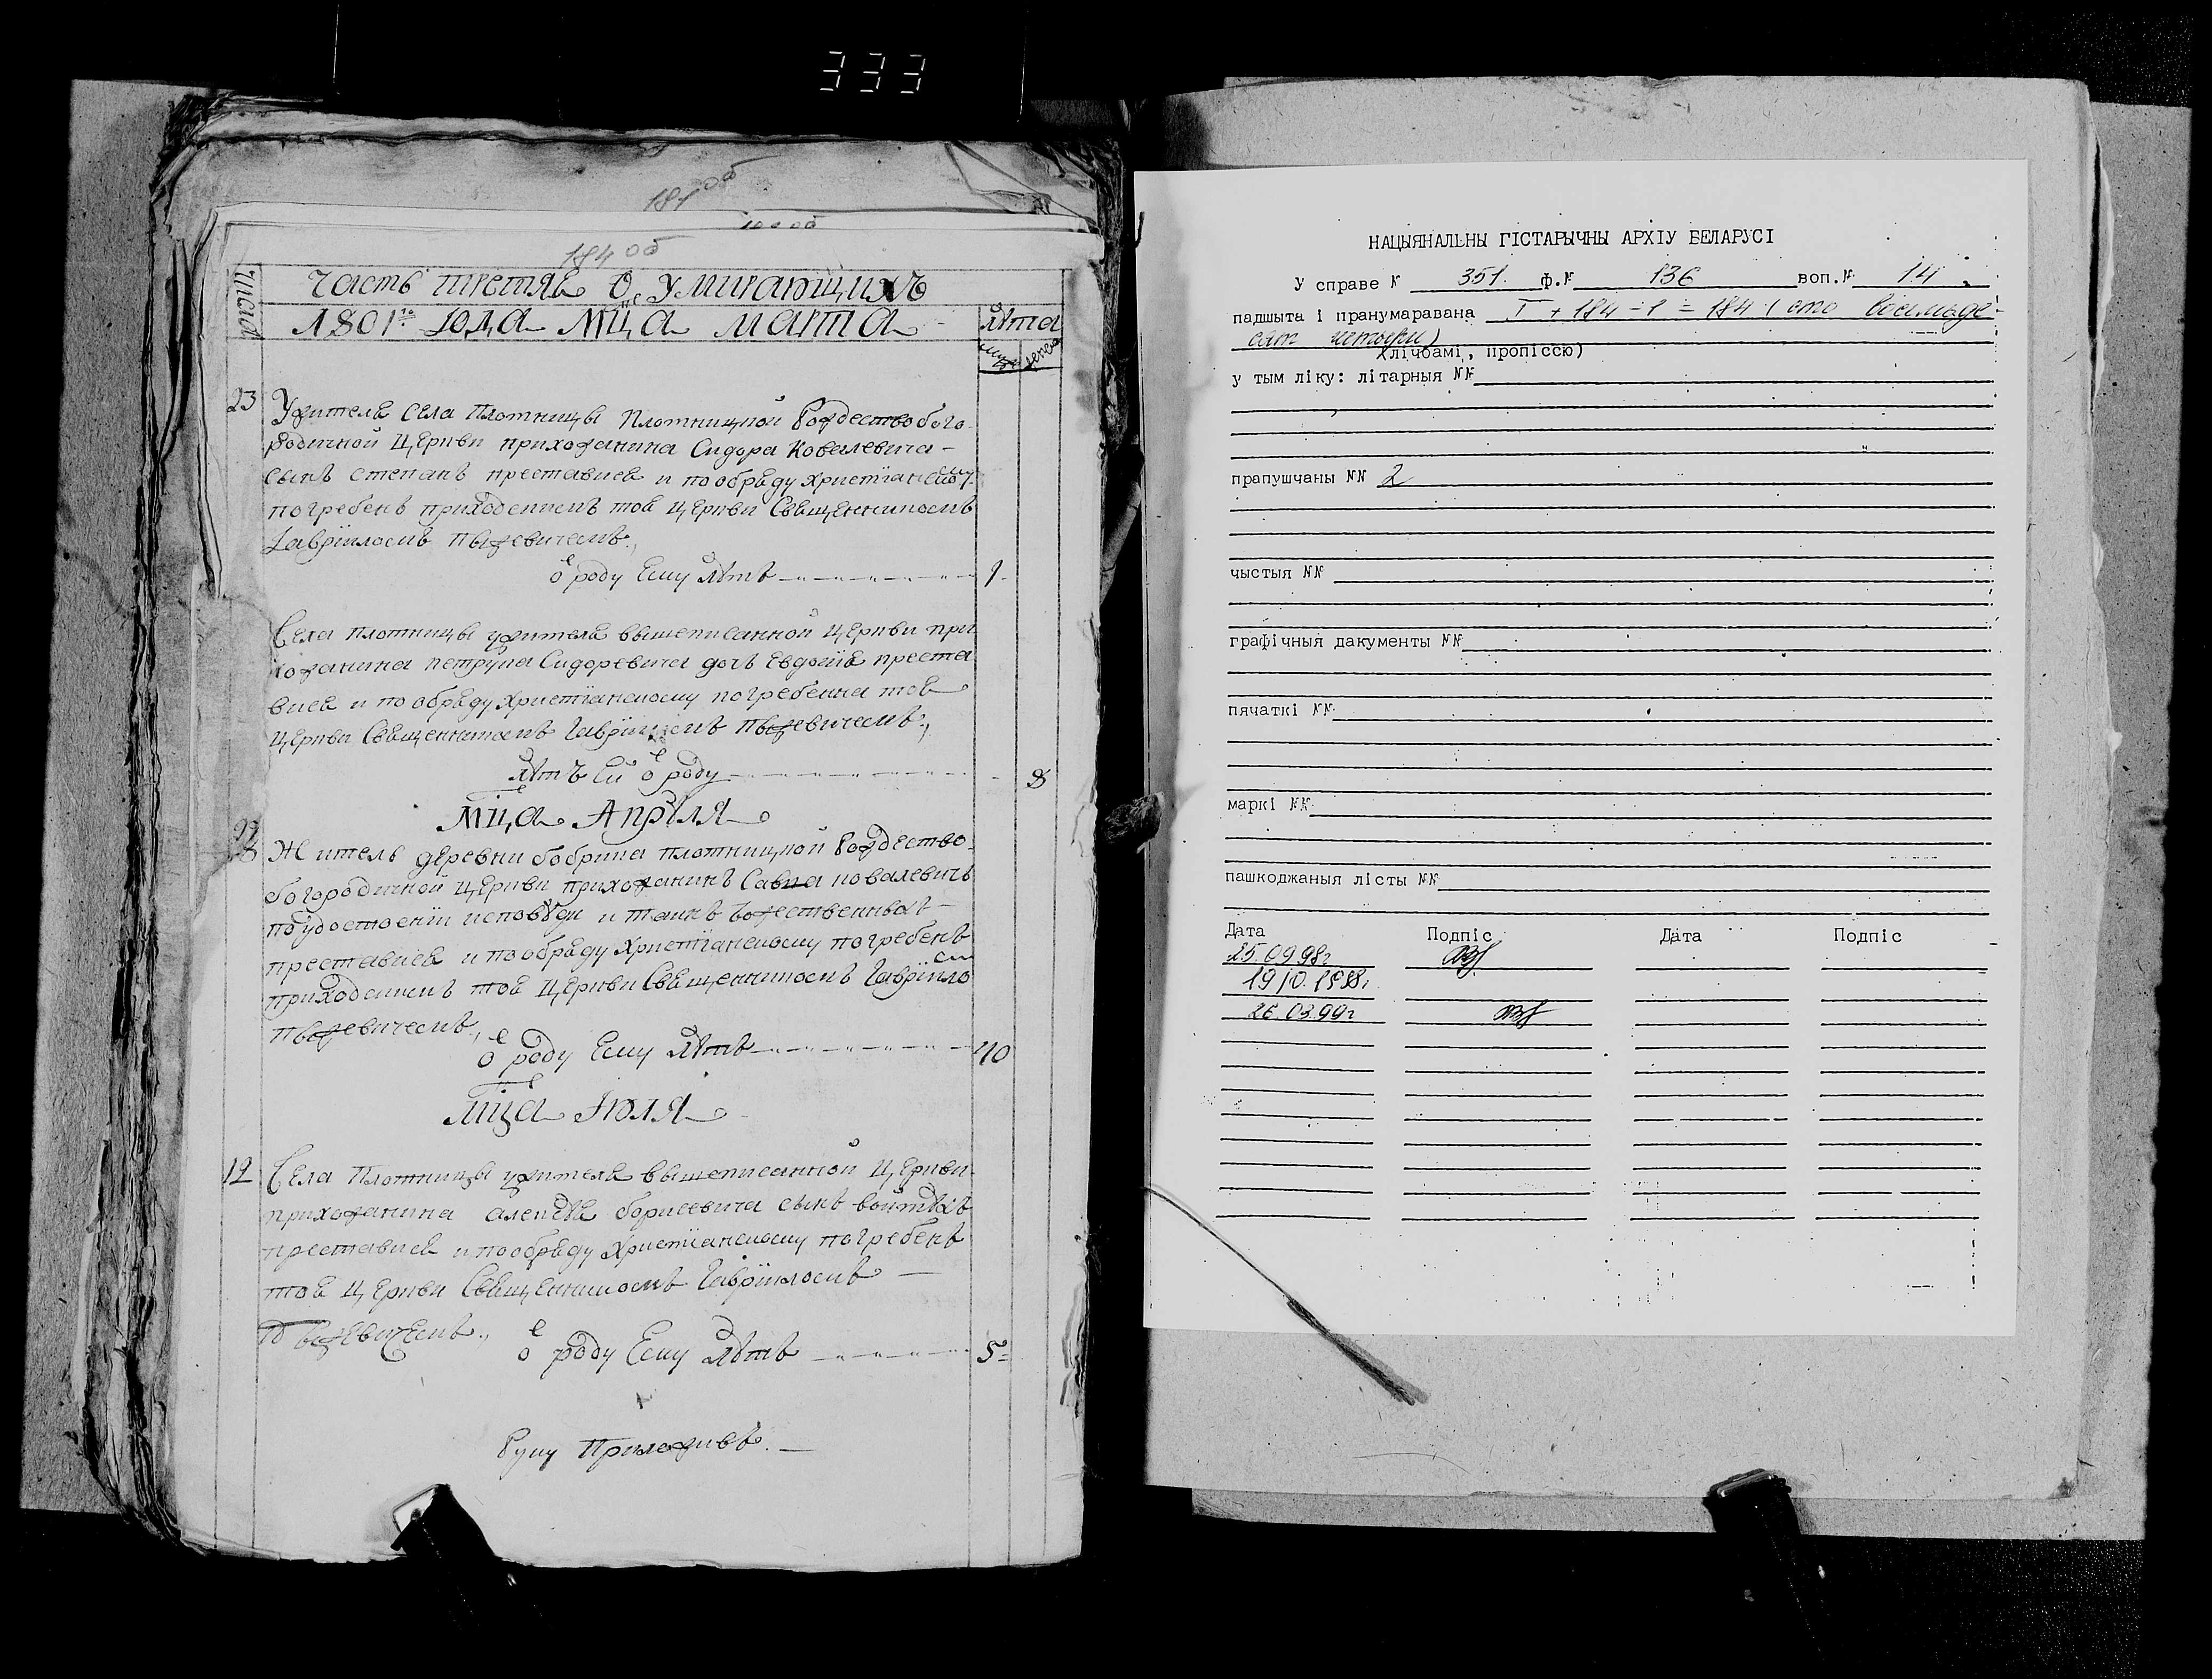 333
181 об
184 об
число
Часть третяя о умирающихъ
1801го года мца марта
лѣта
муж женск
23
Ужителя села Плотницы Плотницкой Рождествобого
родичной Церкви прихожанина Сидора Ковалевича
сынъ Степанъ преставися и по обряду христїанскому
погребенъ приходскимъ тоя Церкви Священникомъ
Гаврїиломъ Пыжевичемъ.
ѿ роду Ему лѣтъ 1
Села Плотницы ужителя вышеписанной Церкви при
хожанина Петрука Сидоревича дочъ Евдокїя преста
вися и по обряду христїанскому погребенна тоя
Церкви Священникомъ Гаврїиломъ Пыжевичемъ.
лѣтъ Ей ѿ роду 8
Мца Апрїля
Житель деревни Бобрика Плотницкой Рождество
богородичной Церкви прихожанинъ Савка Ковалевичъ
по удостоенїи исповѣди и таинъ Божественныхъ
преставися и по обряду христїанскому погребенъ
приходскимъ тоя Церкви Священникомъ Гаврїиломъ
Пыжевичемъ.
ѿ роду Ему лѣтъ 40
Мца Iюля
12
Села Плотницы ужителя вышеписанной Церкви
прихожанина Алексѣя Борисевича сынъ Войтѣхъ
преставися и по обряду христїанскому погребенъ
тоя Церкви Священникомъ Гаврїиломъ
Пыжевичемъ.
ѿ роду Ему лѣтъ 5
Руку Приложивъ.
НАЦЫЯНАЛЬНЫ ГІСТАРЫЧНЫ АРХІУ БЕЛАРУСІ
У справе № 351 ф.№ 136 воп.№ 14
падшыта і пранумаравана I + 184 - 1 = 184 (сто восемьде-
сят четыри)
(лічбамі, пропіссю)
у тым ліку: літарныя №№
прапушчаны №№ 2
чыстыя №№
графічныя дакументы №№
пячаткі №№
маркі №№
пашкоджаныя лісты №№
Дата Подпіс Дата Подпіс
25.09.98г
19.10.1998г
26.03.99г